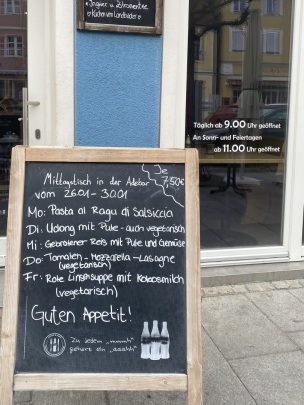 Ingwer u. Zitronentee
Kuchen vom Landbäcker
Täglich ab 9.00 Uhr geöffnet
An Sonn- und Feiertagen
ab 11.00 Uhr geöffnet
Je
7,50€
Mittagstisch in der Adebar
vom 26.01 - 30.01
Mo: Pasta al Ragu di Salsiccia
Di: Udong mit Pute - auch vegetarisch
Mi: Gebratener Reis mit Pute und Gemüse
Do: Tomaten - Mozzarella - Lasagne
(vegetarisch)
Fr: Rote Linsensuppe mit Kokosmilch
(vegetarisch)
Guten Appetit!
Zu jedem „mmmh“
gehört ein „aaahh“